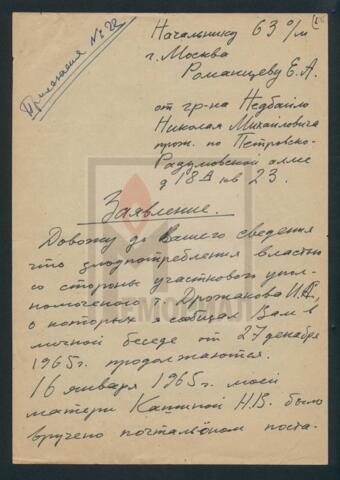 Приложение № 22
Начальнику 63 о/м
г. Москва
Романцеву Е.А.
от гр-на Недбайло
Николая Михайловича
прож. по Петровско-
Разумовской аллее
д 18А кв 23.
Заявление.
Довожу до Вашего сведения
что злоупотребления властью
со стороны участкового упол-
номоченого т. Дрожакова И.А.,
о которых я сообщал Вам в
личной беседе от 27 декабря
1965г. продолжаются.
16 января 1965г. моей
матери Кашиной Н.В. было
вручено почтальёном поста-